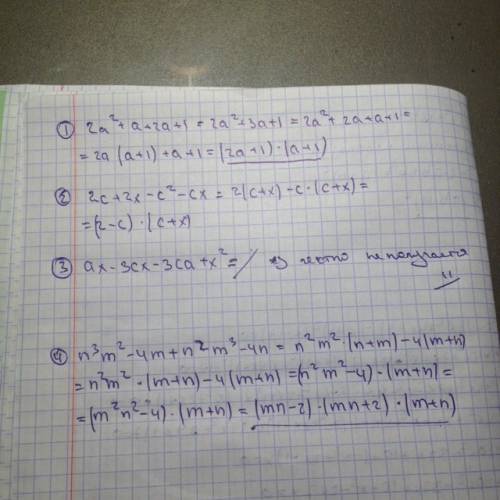 ① 2a²+a+2a+1=2a²+3a+1=2a²+2a+a+1=
=2a(a+1)+a+1=(2a+1)·(a+1)
② 2c+2x-c²-cx=2(c+x)-c·(c+x)=
=(2-c)·(c+x)
③ ax-3cx-3ca+x²= честно не получается
④ n³m²-4m+n²m³-4n=n²m²·(n+m)-4(m+n)
=n²m²·(m+n)-4(m+n)=(n²m²-4)·(m+n)=
=(m²n²-4)·(m+n)=(mn-2)·(mn+2)·(m+n)